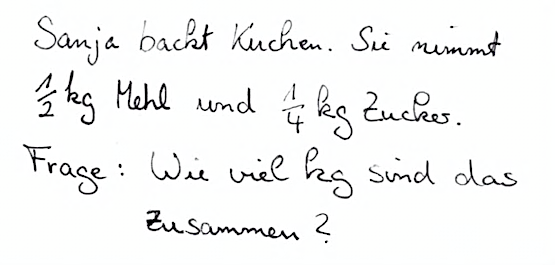 Sanja backt Kuchen. Sie nimmt
1/2 kg Mehl und 1/4 kg Zucker.
Frage: Wie viel kg sind das
zusammen?